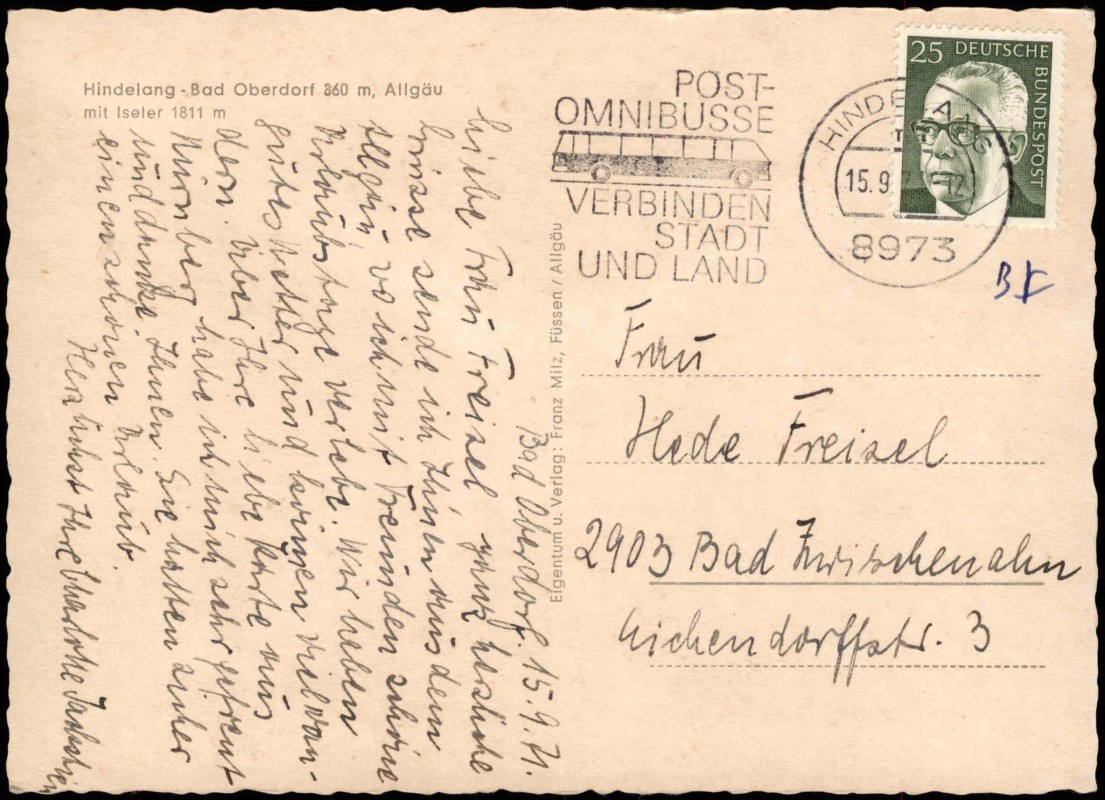 Hindelang - Bad Oberdorf 860 m, Allgäu
mit Iseler 1811 m
POST-
OMNIBUSSE
VERBINDEN
STADT
UND LAND
HINDELANG
15.9
12
8973
25 DEUTSCHE BUNDESPOST
Bad Oberdorf. 15.9.71.
Liebe Frau Freisel ganz herzliche
Grüsse sende ich Ihnen aus dem
Allgäu wo ich mit Freunden schöne
Urlaubstage verlebe. Wir haben
gutes Wetter und können viel wan-
dern. Über Ihre liebe Karte aus
Nürnberg habe ich mich sehr gefreut
und denke Ihnen. Sie hatten sicher
einen schönen Urlaub.
Herzlichst Ihre Charlotte
Eigentum u. Verlag: Franz Milz, Füssen / Allgäu
Frau
Hede Freisel
2903 Bad Zwischenahn
Eichendorffstr. 3